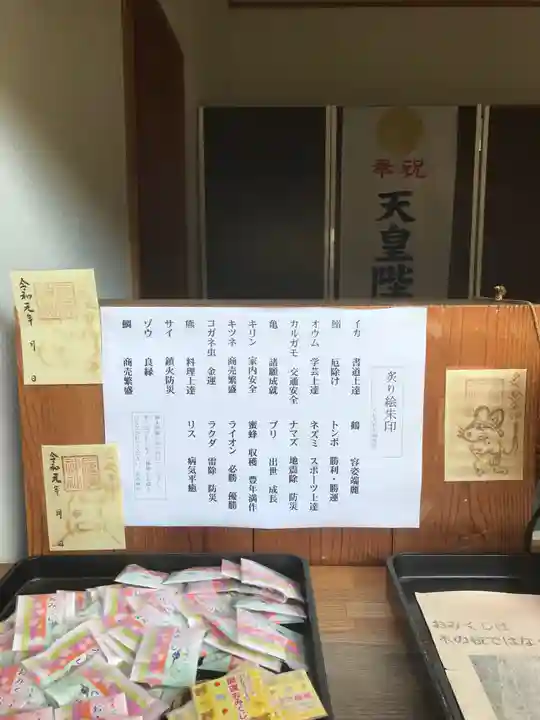 奉祝
天皇陛
炙り絵朱印
イカ 書道上達
鶴 容姿端麗
鮨 厄除け
トンボ 勝利・勝運
オウム 学芸上達
ネズミ スポーツ上達
カルガモ 交通安全
ナマズ 地震除 防災
亀 諸願成就
ブリ 出世 成長
キリン 家内安全
蜜蜂 収穫 豊年満作
キツネ 商売繁盛
ライオン 必勝 優勝
コガネ虫 金運
ラクダ 雷除 防災
熊 料理上達
リス 病気平癒
サイ 鎮火防災
ゾウ 良縁
鯛 商売繁盛
令和元年 月 日
令和元年 月 日
おみくじは
木の板ではな
開運おみくじ